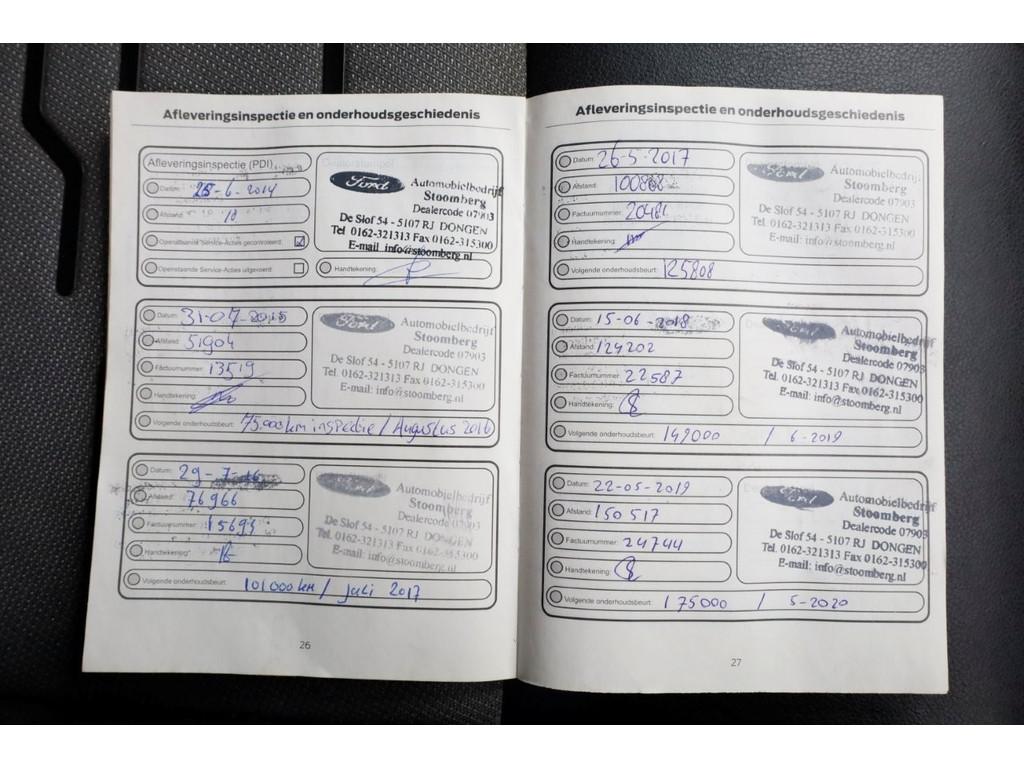 Afleveringsinspectie en onderhoudsgeschiedenis
Afleveringsinspectie (PDI)
Datum: 25-6-2014
Afstand: 10
Openstaande Service-Acties gecontroleerd:
Openstaande Service-Acties uitgevoerd:
Ford
Automobielbedrijf
Stoomberg
Dealercode 07903
De Slof 54 - 5107 RJ DONGEN
Tel 0162-321313 Fax 0162-315300
E-mail: info@stoomberg.nl
Handtekening:
Datum: 31-07-2015
Afstand: 51904
Factuurnummer: 13519
Handtekening:
Ford
Automobielbedrijf
Stoomberg
Dealercode 07903
De Slof 54 - 5107 RJ DONGEN
Tel. 0162-321313 Fax 0162-315300
E-mail: info@stoomberg.nl
Volgende onderhoudsbeurt: 75.000 km inspectie / Augustus 2016
Datum: 29-7-16
Afstand: 76966
Factuurnummer: 15694
Handtekening:
Ford
Automobielbedrijf
Stoomberg
Dealercode 07903
De Slof 54 - 5107 RJ DONGEN
Tel. 0162-321313 Fax 0162-315300
E-mail: info@stoomberg.nl
Volgende onderhoudsbeurt: 101000 km / juli 2017
26
Afleveringsinspectie en onderhoudsgeschiedenis
Datum: 26-5-2017
Afstand: 100808
Factuurnummer: 20481
Handtekening:
Ford
Automobielbedrijf
Stoomberg
Dealercode 07903
De Slof 54 - 5107 RJ DONGEN
Tel. 0162-321313 Fax 0162-315300
E-mail: info@stoomberg.nl
Volgende onderhoudsbeurt: 125808
Datum: 15-06-2018
Afstand: 124202
Factuurnummer: 22587
Handtekening:
Ford
Automobielbedrijf
Stoomberg
Dealercode 07903
De Slof 54 - 5107 RJ DONGEN
Tel. 0162-321313 Fax 0162-315300
E-mail: info@stoomberg.nl
Volgende onderhoudsbeurt: 149000 / 6-2019
Datum: 22-05-2019
Afstand: 150517
Factuurnummer: 24744
Handtekening:
Ford
Automobielbedrijf
Stoomberg
Dealercode 07903
De Slof 54 - 5107 RJ DONGEN
Tel. 0162-321313 Fax 0162-315300
E-mail: info@stoomberg.nl
Volgende onderhoudsbeurt: 175000 / 5-2020
27